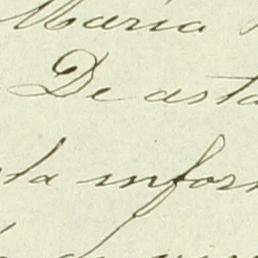 Maria
De asta
ta infor